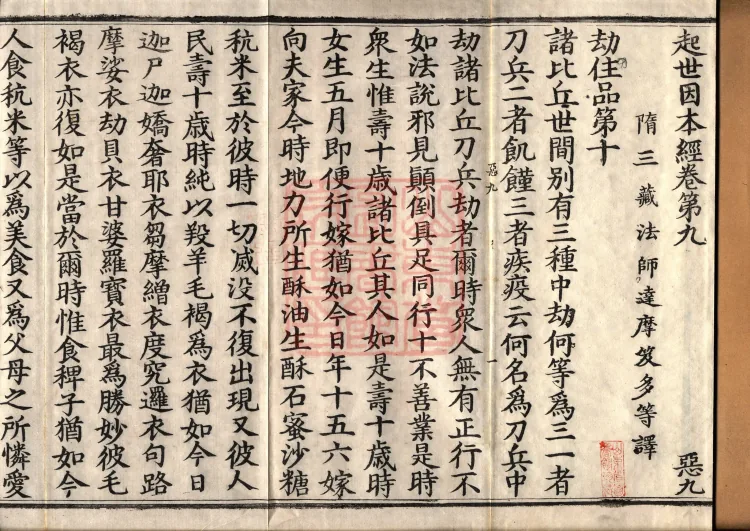 起世因本經卷第九 惡九
隋三藏法師達摩笈多等譯
劫住品第十
諸比丘世間別有三種中劫何等為三一者
刀兵二者飢饉三者疾疫云何名為刀兵中
惡九 一
劫諸比丘刀兵劫者爾時眾人無有正行不
如法說邪見顛倒具足同行十不善業是時
眾生惟壽十歲諸比丘其人如是壽十歲時
女生五月即便行嫁猶如今日年十五六嫁
向夫家今時地力所生酥油生酥石蜜沙糖
秔米至於彼時一切滅没不復出現又彼人
民壽十歲時純以羖羊毛褐為衣猶如今日
迦尸迦嬌奢耶衣芻摩繒衣度究邏衣句路
摩娑衣劫貝衣甘婆羅寶衣最為勝妙彼毛
褐衣亦復如是當於爾時惟食稗子猶如今
人食秔米等以為美食又為父母之所憐愛